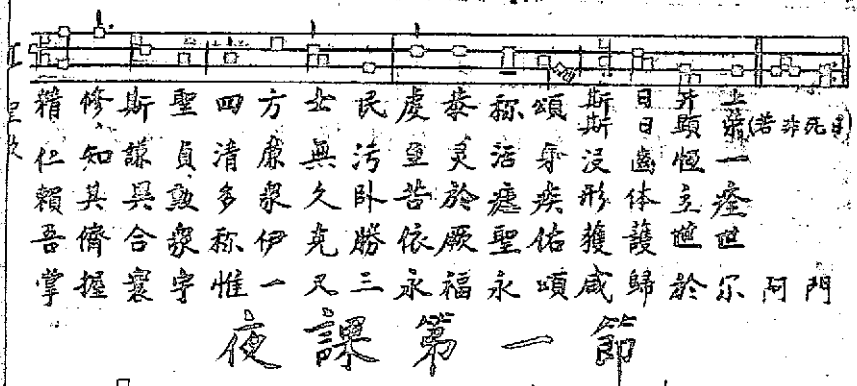 精修斯聖四方士民虔恭称頌斯日升上
斯日顕榮(若非死日)
仁知謙貞清廉無污至灵活身没齒恆一
賴其異勲多衆久卧苦於瘧疾形体立痊
吾儕合衆称伊克勝依厥聖佑獲護世世
掌握寰宇惟一又三永福永頌咸歸於尔 阿門
夜課第一節